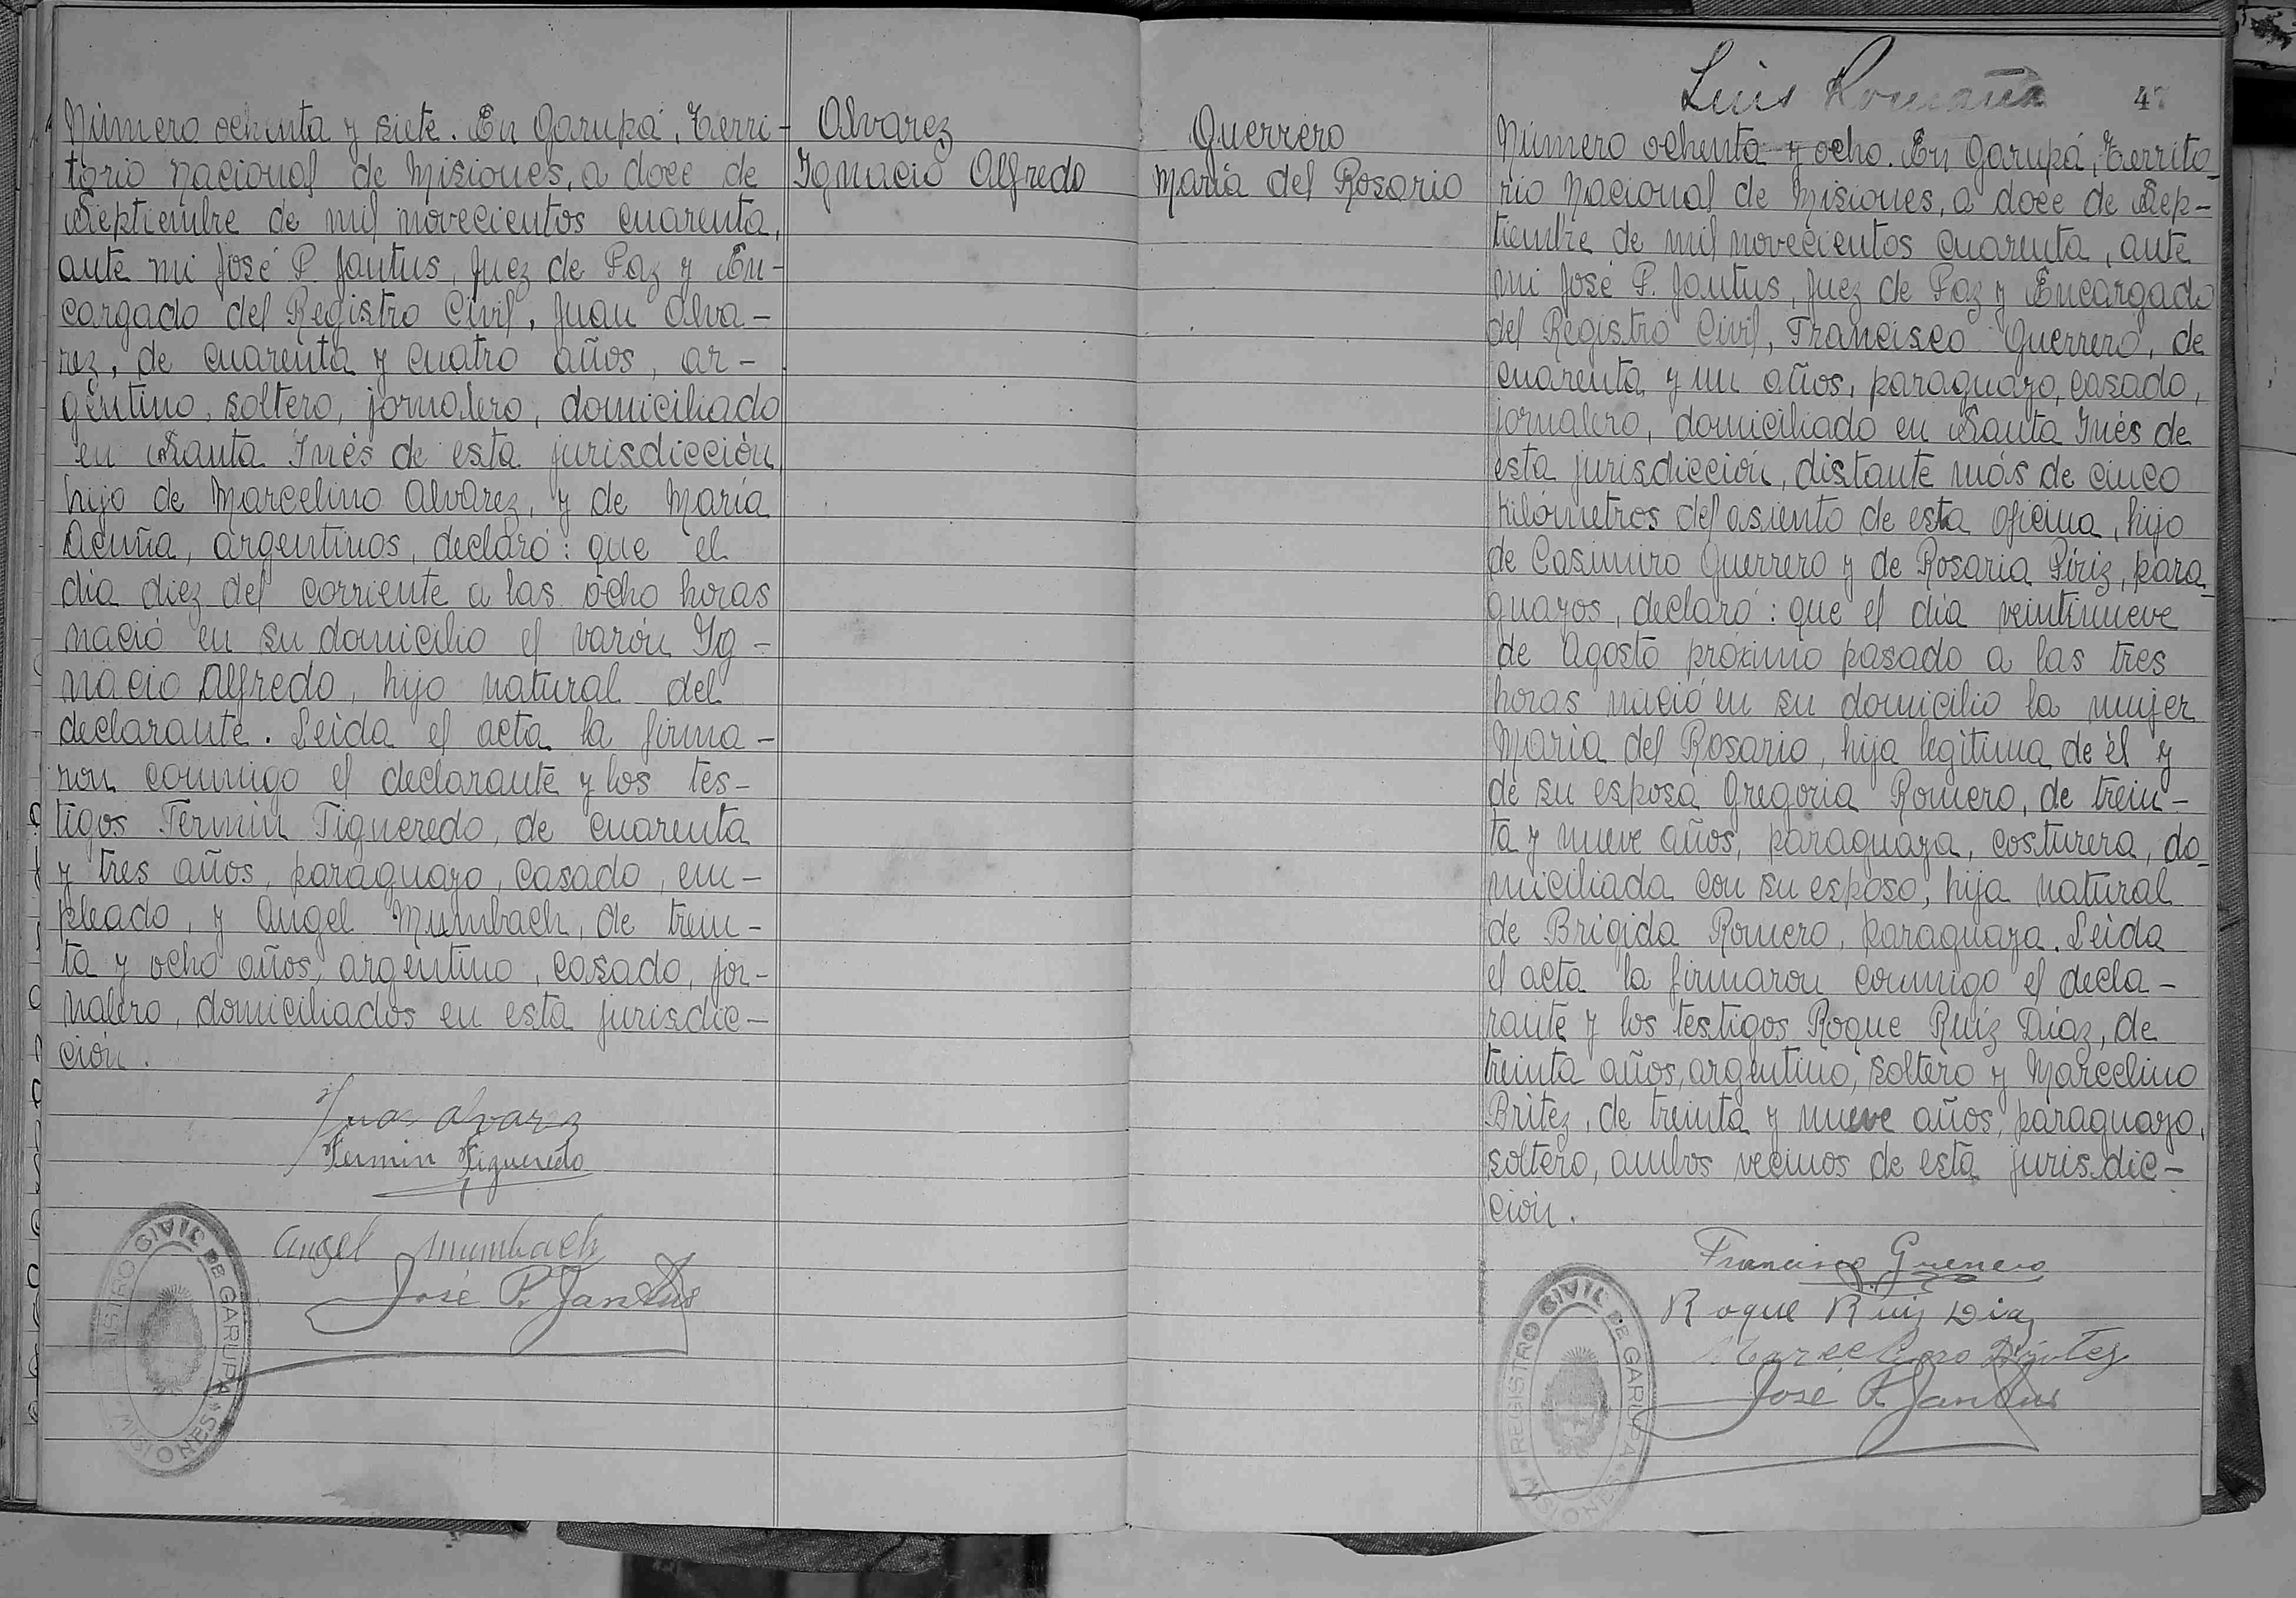 Número ochenta y siete. En Garupá, Terri-
torio Nacional de Misiones, a doce de
Septiembre de mil novecientos cuarenta,
ante mi José P. Jantus, Juez de Paz y En-
cargado del Registro Civil, Juan Alva-
rez, de cuarenta y cuatro años, ar-
gentino, soltero, jornalero, domiciliado
en Santa Inés de esta jurisdicción
hijo de Marcelino Alvarez, y de María
Acuña, argentinos, declaró: que el
día diez del corriente a las ocho horas
nació en su domicilio el varón Ig-
nacio Alfredo, hijo natural del
declarante. Leida el acta la firma-
ron conmigo el declarante y los tes-
tigos Fermín Figueredo, de cuarenta
y tres años, paraguayo, casado, em-
pleado, y Angel Mumbach, de trein-
ta y ocho años, argentino, casado, jor-
nalero, domiciliados en esta jurisdic-
ción.
Juan Alvarez
Fermin Figueredo
Angel Mumbach
José P. Jantus
REGISTRO CIVIL DE GARUPA
MISIONES
Alvarez
Ignacio Alfredo
Guerrero
María del Rosario
Luis Romaña
47
Número ochenta y ocho. En Garupá, Territo-
rio Nacional de Misiones, a doce de Sep-
tiembre de mil novecientos cuarenta, ante
mi José P. Jantus, Juez de Paz y Encargado
del Registro Civil, Francisco Guerrero, de
cuarenta y un años, paraguayo, casado,
jornalero, domiciliado en Santa Inés de
esta jurisdicción, distante más de cinco
kilómetros del asiento de esta oficina, hijo
de Casimiro Guerrero y de Rosaria Píriz, para-
guayos, declaró: que el día veintinueve
de Agosto próximo pasado a las tres
horas nació en su domicilio la mujer
María del Rosario, hija legítima de él y
de su esposa Gregoria Romero, de trein-
ta y nueve años, paraguaya, costurera, do-
miciliada con su esposo, hija natural
de Brigida Romero, paraguaya. Leida
el acta la firmaron conmigo el decla-
rante y los testigos Roque Ruíz Díaz, de
treinta años, argentino, soltero y Marcelino
Britez, de treinta y nueve años, paraguayo,
soltero, ambos vecinos de esta jurisdic-
ción.
Francisco Guerrero
Roque Ruiz Diaz
Marcelino Britez
José P. Jantus
REGISTRO CIVIL DE GARUPA
MISIONES